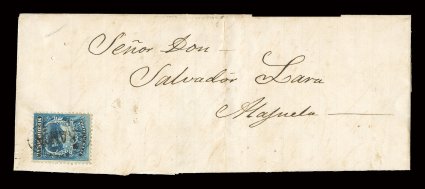 Señor Don
Salvador Lara
Alajuela